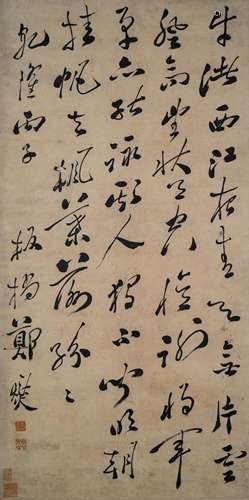 牛渚西江夜青天無片雲
登高望秋月空憶謝將軍
余亦能詠斯人獨不聞明朝
挂帆去楓葉落紛紛
乾隆丙子 板橋鄭燮